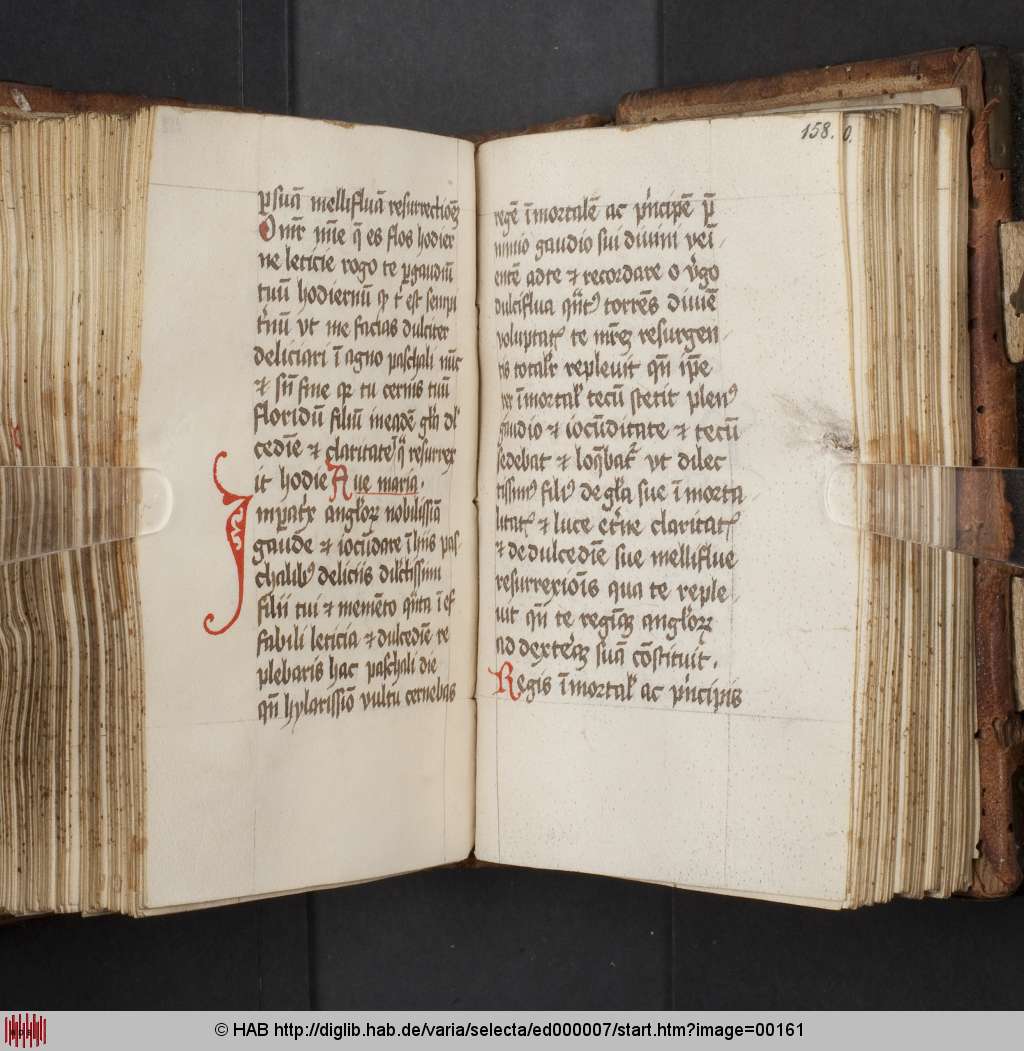 p suā mellifluā resurrectionē
O mr̄ mīe q̄ es flos hodier
ne leticie rogo te p gaudiū
tuū hodiernū qr̄ t̄ est sempi
t'nū vt me facias dulciter
deliciari ī agno paschali nūc
et sn̄ fine qr̄ tu cernis tuū
floridū filiū in eadē gla dl
cedīe et claritate q̄ resurrex
it hodie Aue maria.
Impatx anglorꝝ nobilissīa
gaude et iocūdare ī hiis pas
chalibꝰ deliciis dilectissimi
filii tui et memēto q̄nta ī ef
fabili leticia et dulcedīe re
plebaris hac paschali die
qn̄ hylarissīo vultu cernebas
158.
regē īmortalē ac p'ncipē p̄
nimio gaudio sui diuini vei
entē ad te et recordare o v'go
dulciflua q̄ntꝰ torrēs diuīe
voluptatꝭ te mrēꝫ resurgen
tis totalr̄ repleuit qn̄ ip̄e
īmortalꝭ tecū stetit plenꝰ
gaudio et iocūditate et tecū
sedebat et loq̄bat' vt dilec
tissimꝰ filiꝰ de gla sue īmorta
litatꝭ et luce et'ne claritatꝭ
et de dulcedīe sue melliflue
resurrexiōis qua te reple
uit qn̄ te regīaꝫ anglorꝝ
ad dext'aꝫ suā cōstituit.
Regis īmortalꝭ ac p'ncipis
© HAB http://diglib.hab.de/varia/selecta/ed000007/start.htm?image=00161